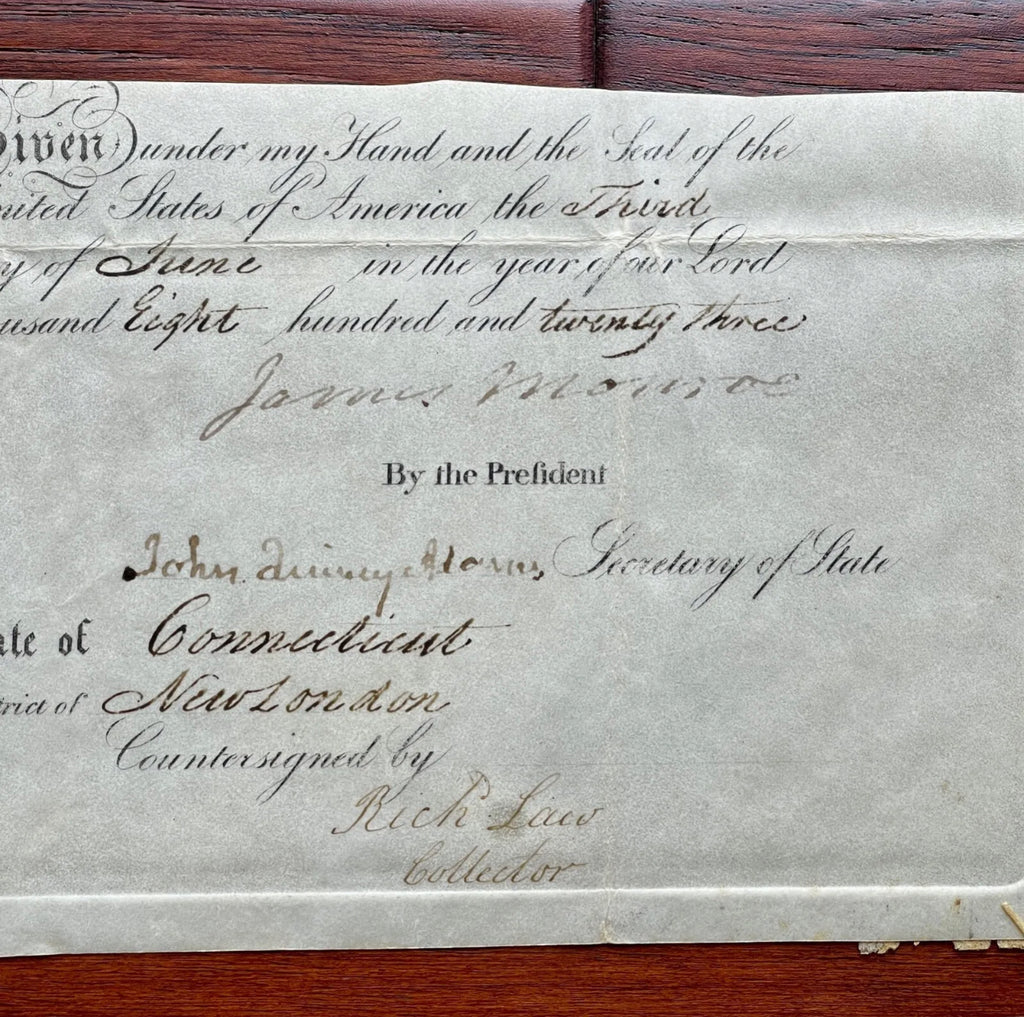 Given under my Hand and the Seal of the
United States of America the Third
y of June in the year of our Lord
usand Eight hundred and twenty three
James Monroe
By the Preſident
John Quincy Adams Secretary of State
ate of Connecticut
trict of New London
Countersigned by
Richd Law
Collector